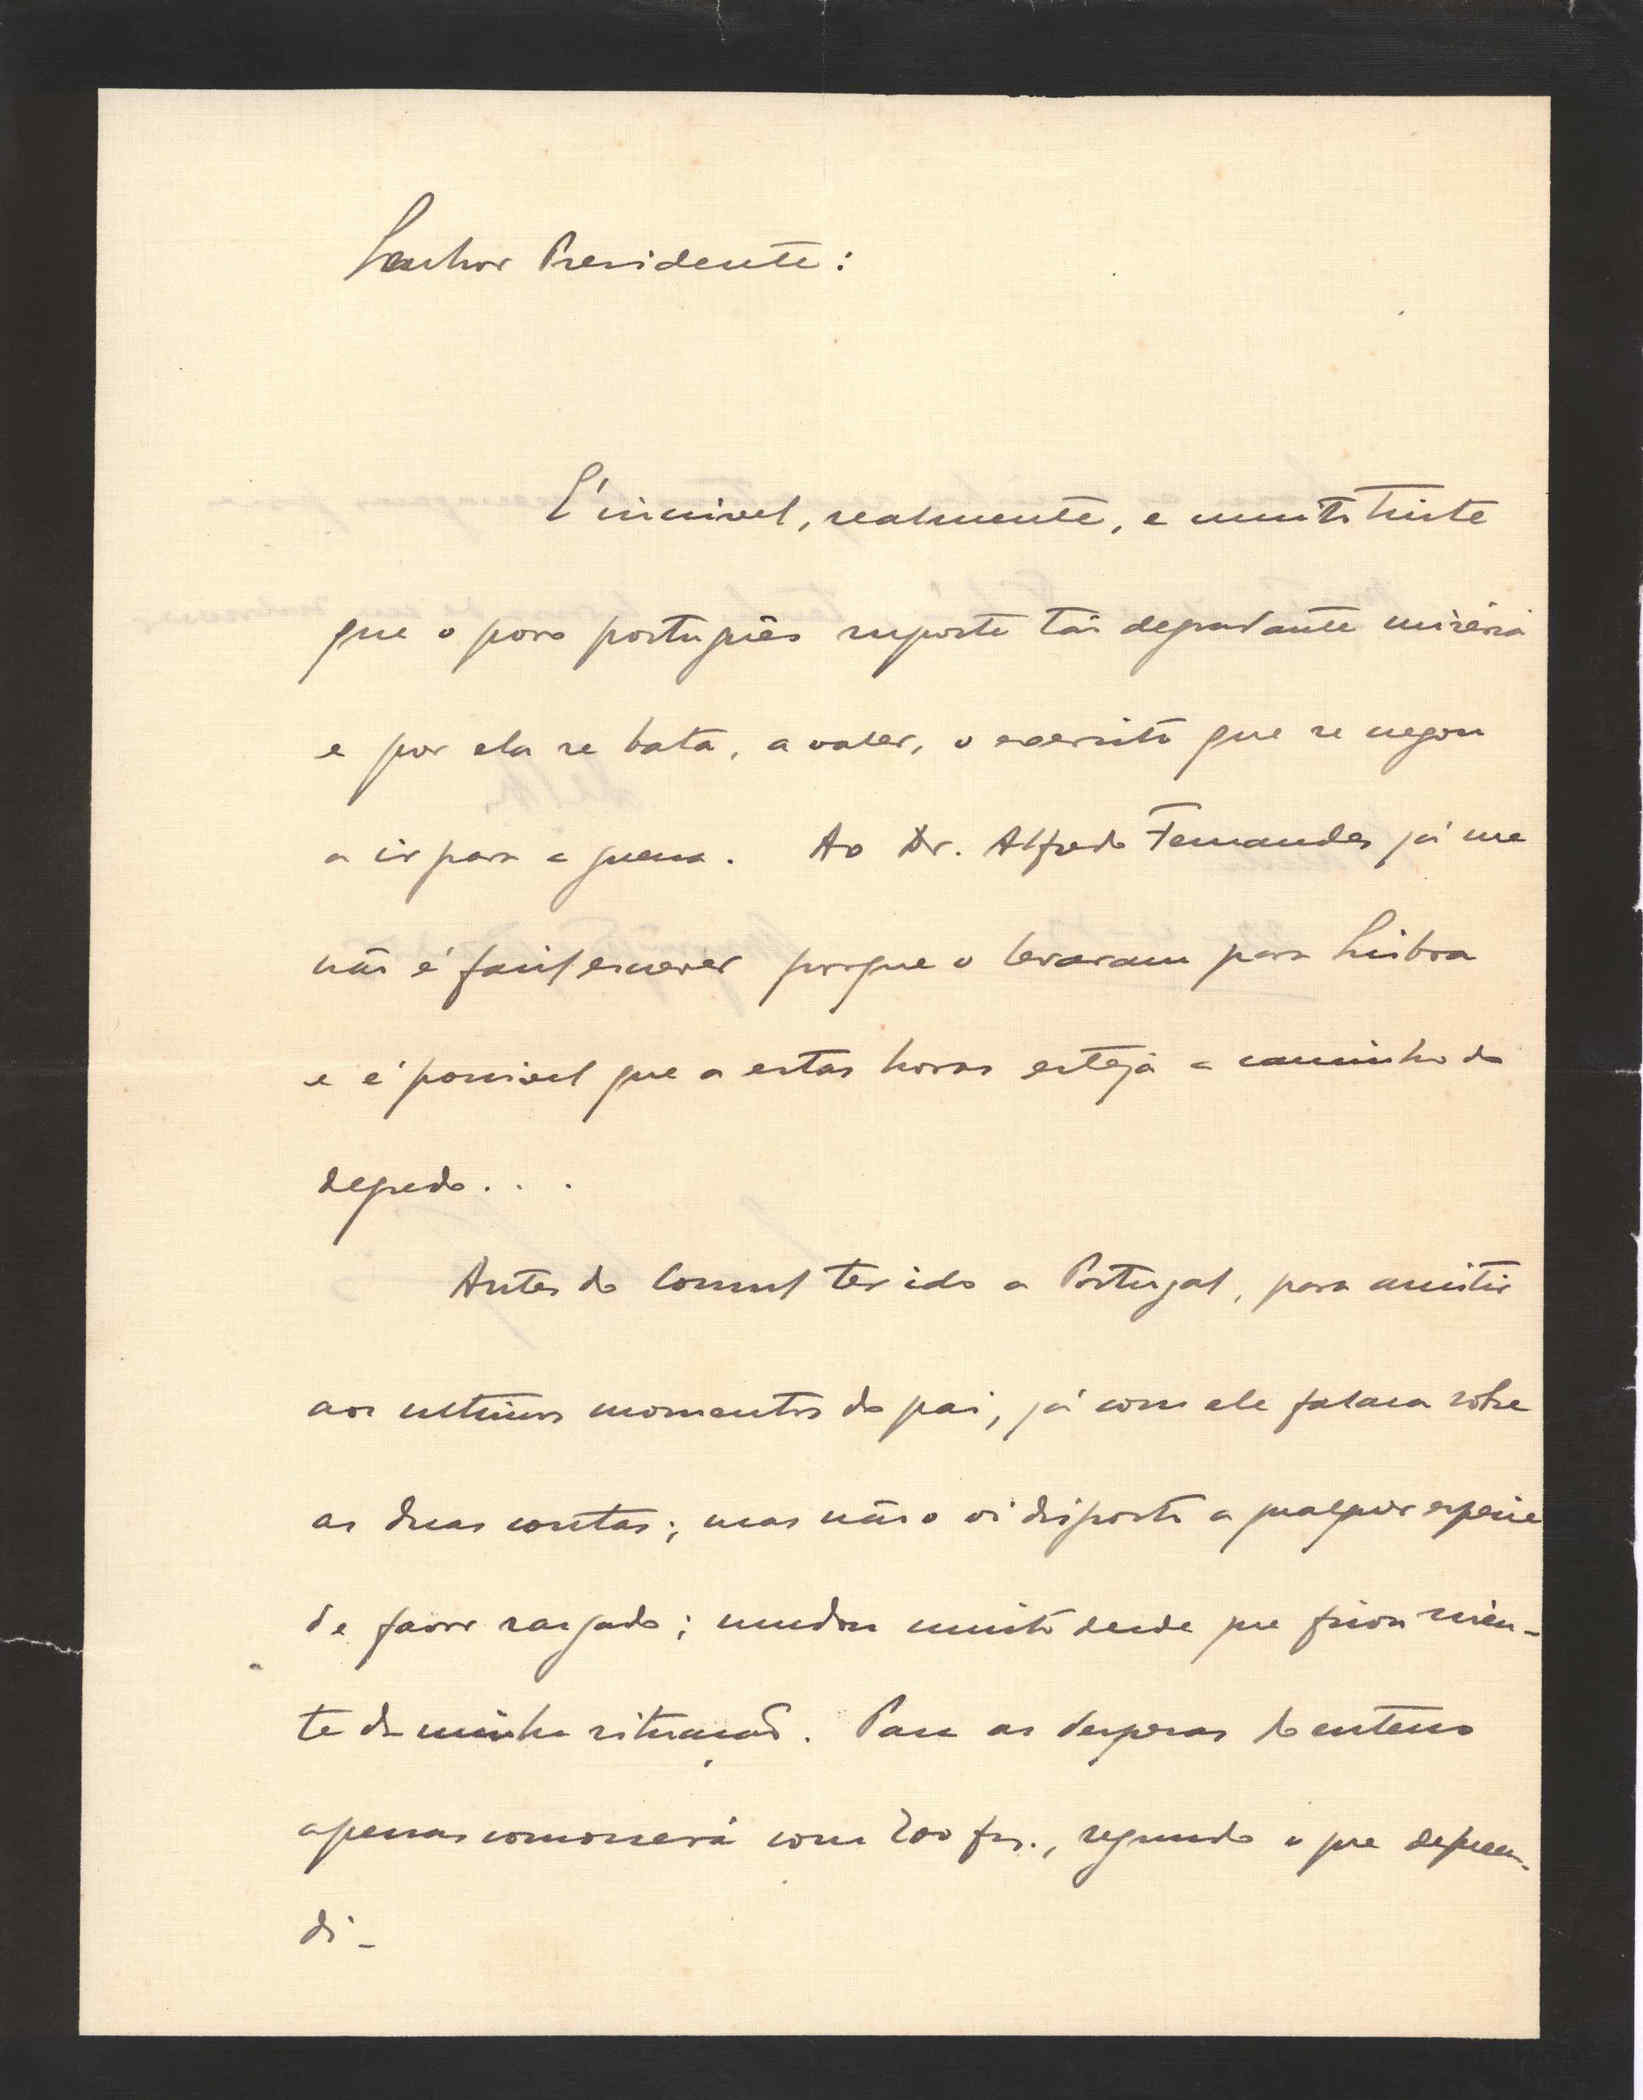 Senhor Presidente:
É incrivel, realmente, e muito triste
que o povo português suporte tão degradante miséria
e por ela se bata, a valer, o exercito que se negou
a ir para a guerra. Ao Dr. Alfredo Fernandes já me
não é facil escrever porque o levaram para Lisboa
e é possivel que a estas horas esteja a caminho do
degredo...
Antes do Consul ter ido a Portugal, para assistir
aos ultimos momentos do pai, já com ele falara sobre
as duas contas; mas não o vi disposto a qualquer especie
de favor rasgado; mudou muito desde que ficou scien-
te da minha situação. Para as despesas do enterro
apenas concorrerá com 200 frs., segundo o que depreen-
di_